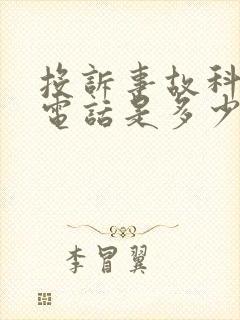 投訴事故科
電話是多少
李冒翼